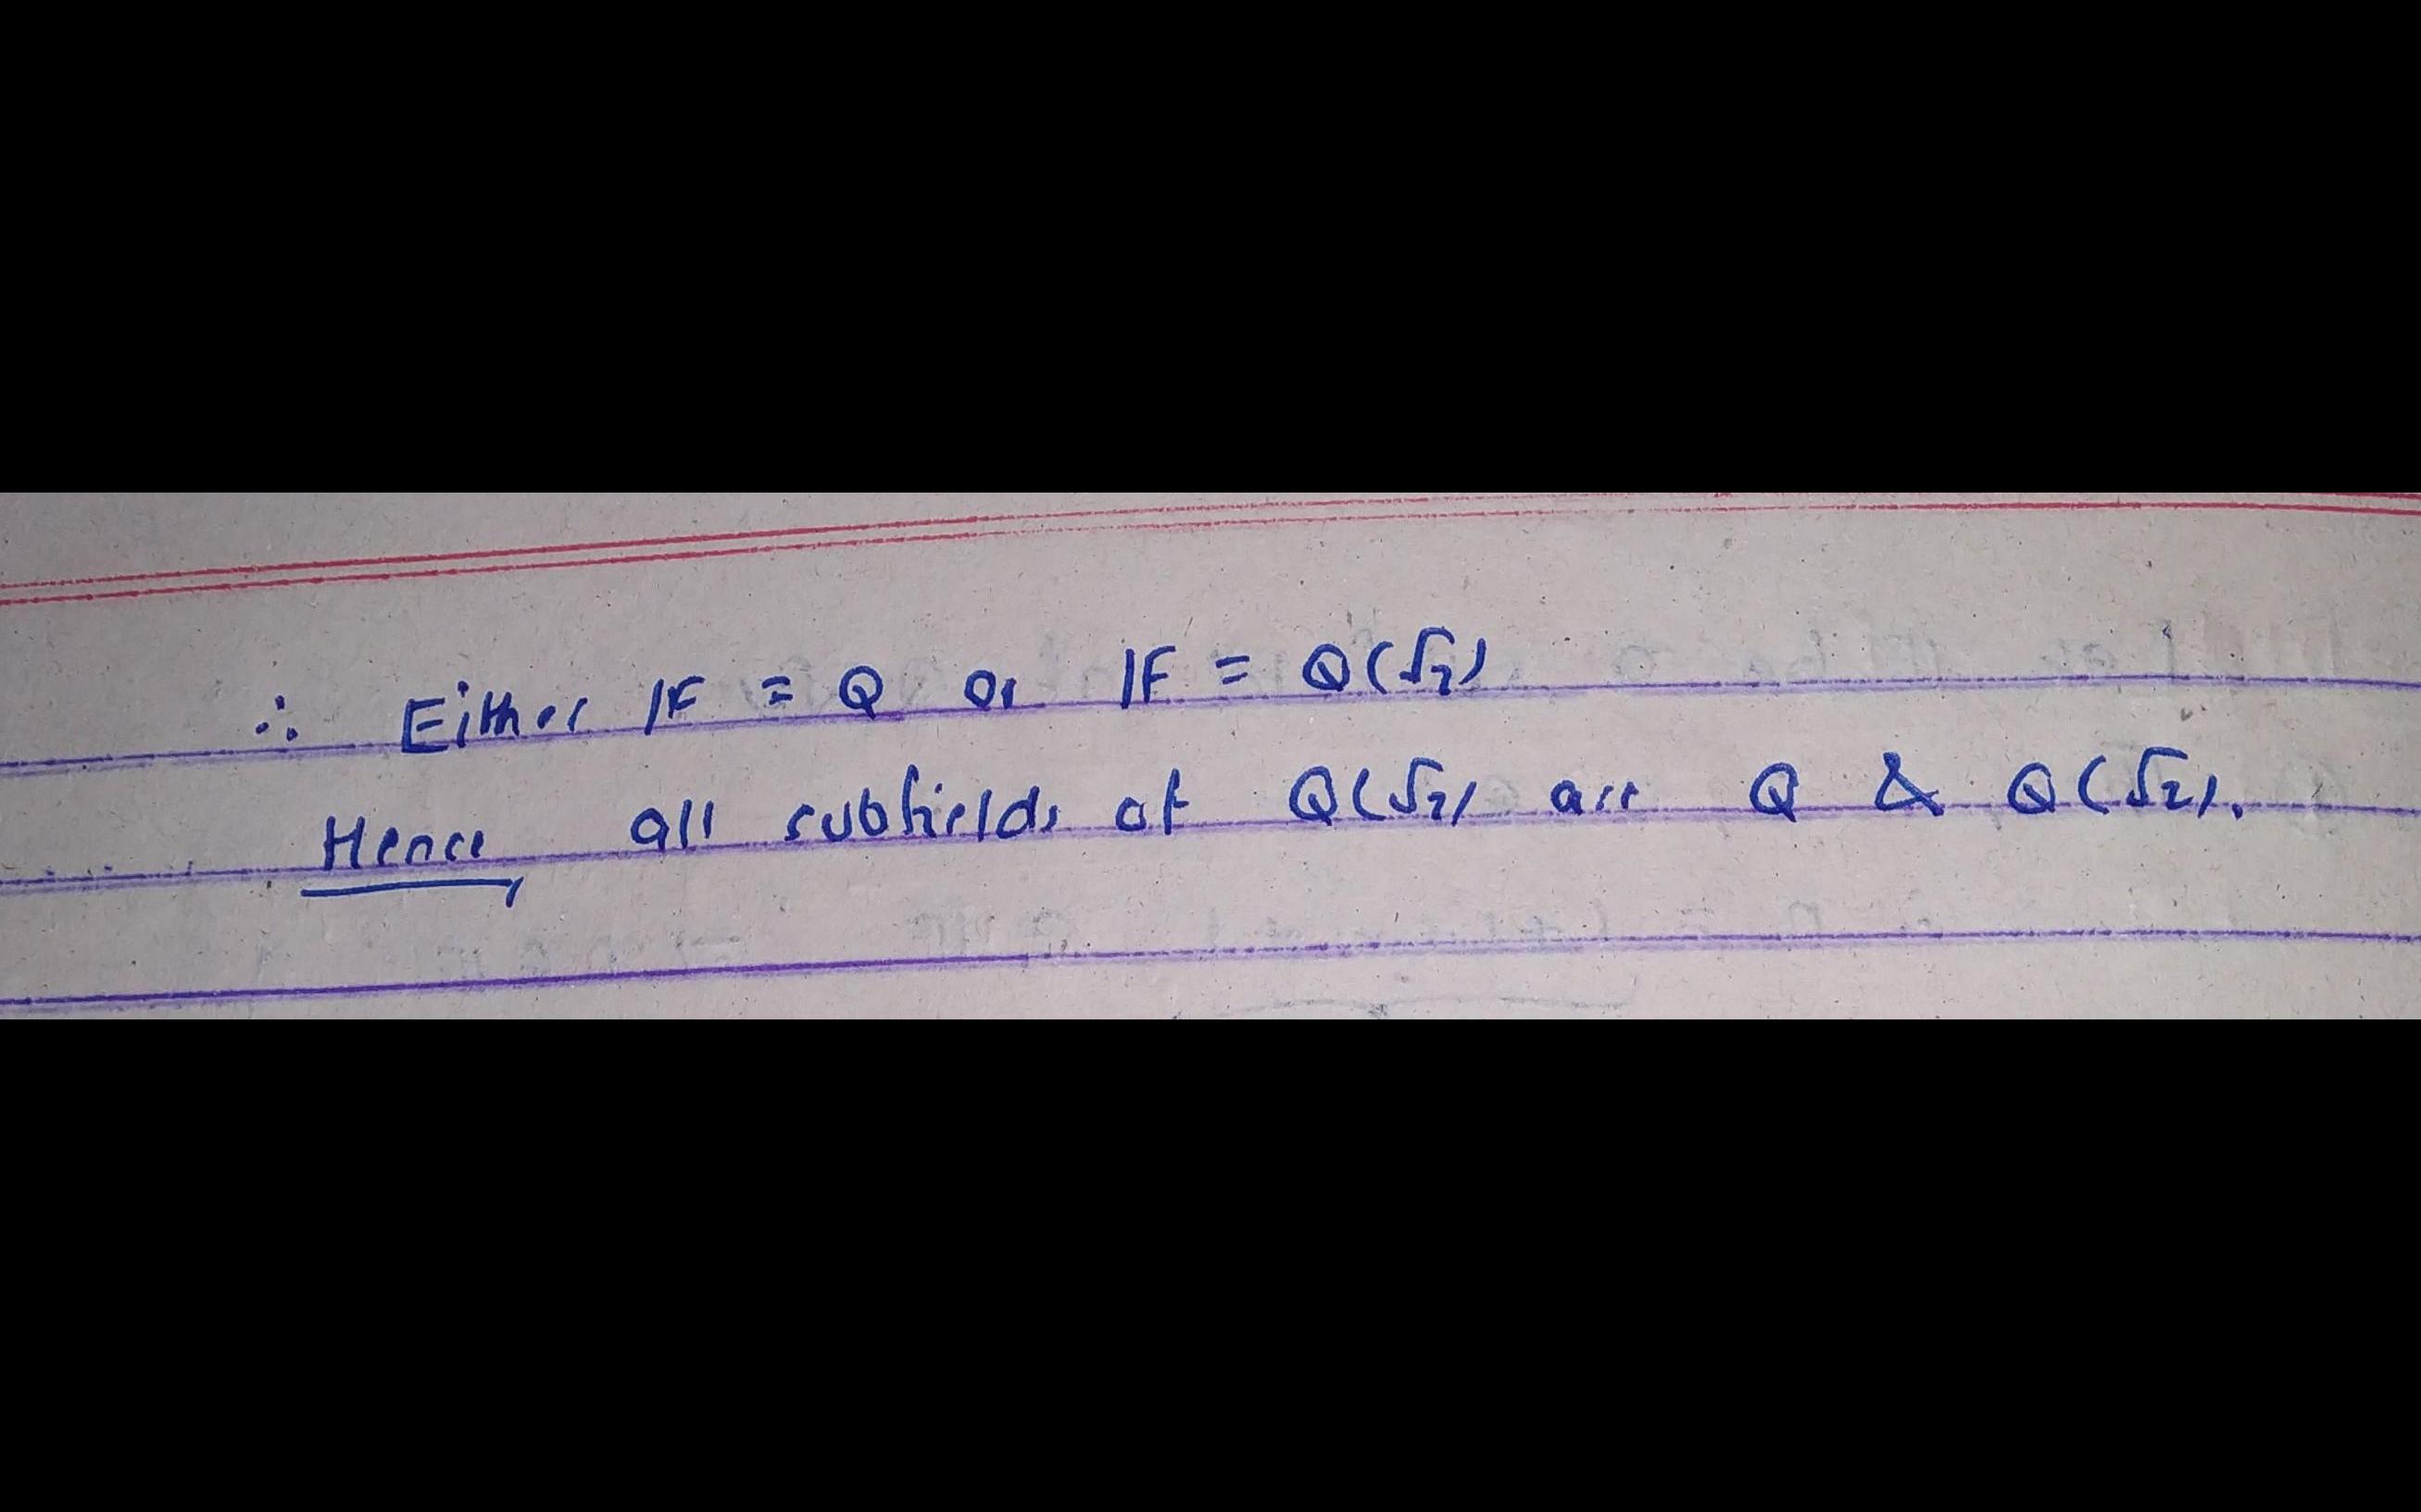 ∴ Either IF = Q or IF = Q(√2)
Hence, all subfields of Q(√2) are Q & Q(√2).